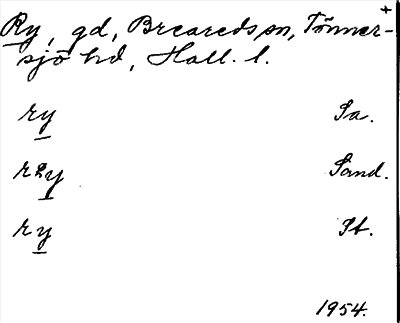 Ry, gd, Breareds sn, Tönner-
sjö hd, Hall. l.
ry Sa.
ry Sand.
ry St.
1954.